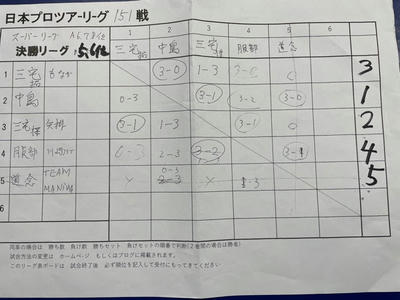 日本プロツアーリーグ 151戦
スーパーリーグ A6.7.8位
決勝リーグ 5,6位
1 2 3 4 5
三宅 中島 三宅 服部 道念
1 三宅 もなか 3-0 1-3 3-0 3
2 中島 0-3 3-1 3-2 3-0 1
3 三宅 矢掛 3-1 1-3 3-1 2
4 服部 0-3 2-3 3-2 3-1 4
5 道念 TEAM MANIWA 0-3 2-3 1-3 5
6
同率の場合は 勝ち数 負け数 勝ちセット 負けセットの順番で判断(2者間の場合は勝者)
試合方法の変更は ホームページ もしくはブログに掲載されます。
このリーグ表ボードは 試合終了後 必ず順位を記入して受付にもってきてください